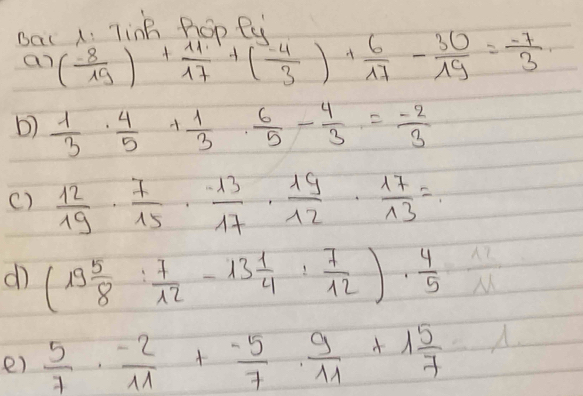 Bài 1: Tính hợp lý
a) (-8/19) + 11/17 + (-4/3) + 6/17 - 30/19 = -7/3.
b) 1/3 . 4/5 + 1/3 . 6/5 - 4/3 . = -2/3
c) 12/19 . 7/15 . -13/17 . 19/12 . 17/13 = .
d) (19 5/8 : 7/12 - 13 1/4 : 7/12) . 4/5
e) 5/7 . -2/11 + -5/7 . 9/11 + 1 5/7